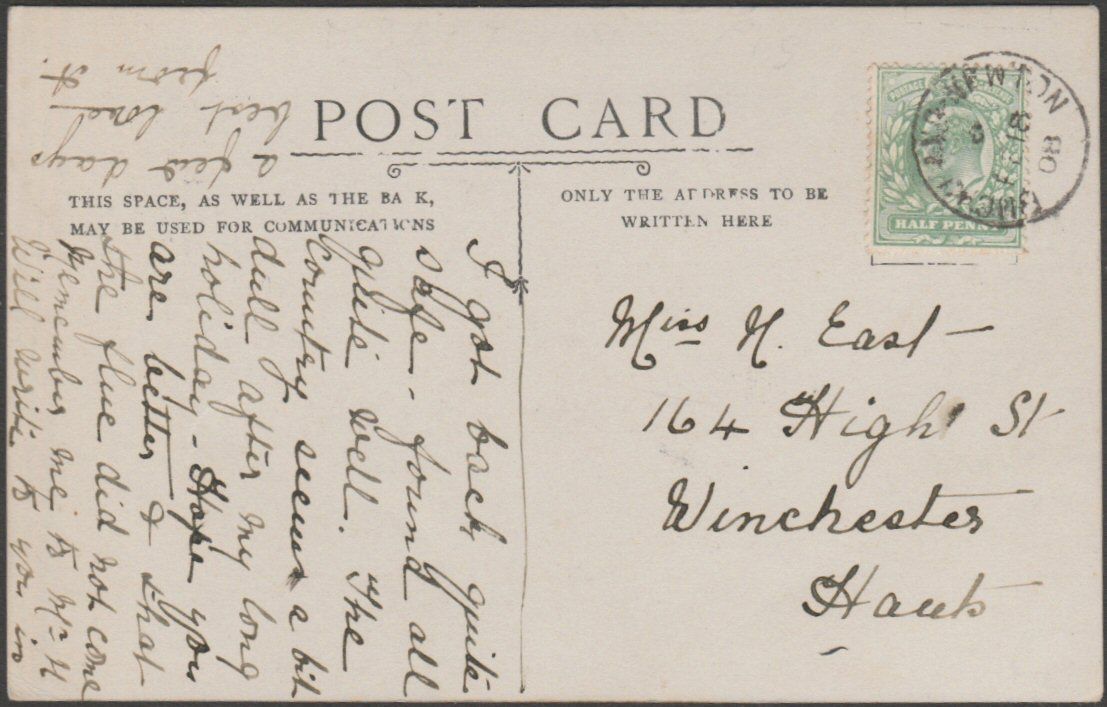 POST CARD
THIS SPACE, AS WELL AS THE BA K,
MAY BE USED FOR COMMUNICATIONS
ONLY THE ADDRESS TO BE
WRITTEN HERE
POSTAGE
HALF PENNY
08
I got back quite
safe - found all
quite well. The
Country seems a bit
dull after my long
holiday - Hope you
are better & that
the flue did not come
Remember me to Mr H
Will write to you in
a few days
best love
from A.
Miss N. East
164 High St
Winchester
Hants